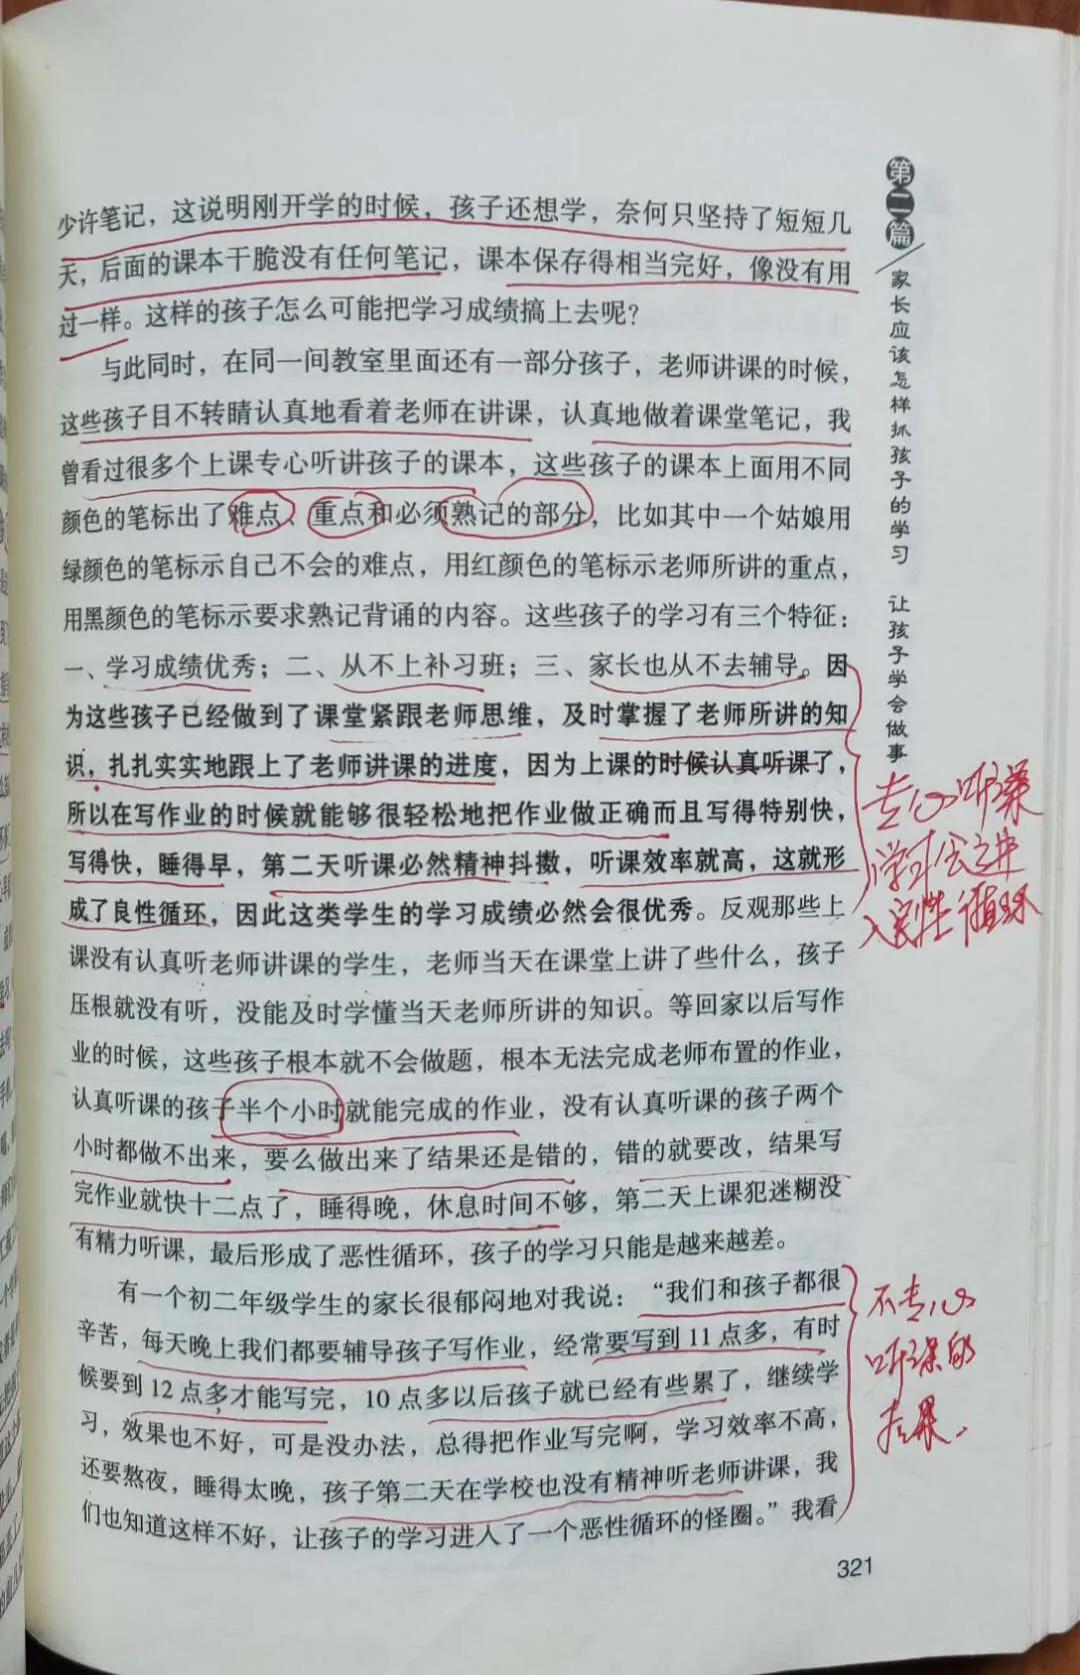 少许笔记，这说明刚开学的时候，孩子还想学，奈何只坚持了短短几
天，后面的课本干脆没有任何笔记，课本保存得相当完好，像没有用
过一样。这样的孩子怎么可能把学习成绩搞上去呢？
与此同时，在同一间教室里面还有一部分孩子，老师讲课的时候，
这些孩子目不转睛认真地看着老师在讲课，认真地做着课堂笔记，我
曾看过很多个上课专心听讲孩子的课本，这些孩子的课本上面用不同
颜色的笔标出了难点、重点和必须熟记的部分，比如其中一个姑娘用
绿颜色的笔标示自己不会的难点，用红颜色的笔标示老师所讲的重点，
用黑颜色的笔标示要求熟记背诵的内容。这些孩子的学习有三个特征：
一、学习成绩优秀；二、从不上补习班；三、家长也从不去辅导。因
为这些孩子已经做到了课堂紧跟老师思维，及时掌握了老师所讲的知
识，扎扎实实地跟上了老师讲课的进度，因为上课的时候认真听课了，
所以在写作业的时候就能够很轻松地把作业做正确而且写得特别快，
写得快，睡得早，第二天听课必然精神抖擞，听课效率就高，这就形
成了良性循环，因此这类学生的学习成绩必然会很优秀。反观那些上
课没有认真听老师讲课的学生，老师当天在课堂上讲了些什么，孩子
压根就没有听，没能及时学懂当天老师所讲的知识。等回家以后写作
业的时候，这些孩子根本就不会做题，根本无法完成老师布置的作业，
认真听课的孩子半个小时就能完成的作业，没有认真听课的孩子两个
小时都做不出来，要么做出来了结果还是错的，错的就要改，结果写
完作业就快十二点了，睡得晚，休息时间不够，第二天上课犯迷糊没
有精力听课，最后形成了恶性循环，孩子的学习只能是越来越差。
有一个初二年级学生的家长很郁闷地对我说：“我们和孩子都很
辛苦，每天晚上我们都要辅导孩子写作业，经常要写到11点多，有时
候要到12点多才能写完，10点多以后孩子就已经有些累了，继续学
习，效果也不好，可是没办法，总得把作业写完啊，学习效率不高，
还要熬夜，睡得太晚，孩子第二天在学校也没有精神听老师讲课，我
们也知道这样不好，让孩子的学习进入了一个恶性循环的怪圈。”我看
321
第二篇
家长应该怎样抓孩子的学习 让孩子学会做事
专心听课
学习会进
入良性循环
不专心
听课的
后果.